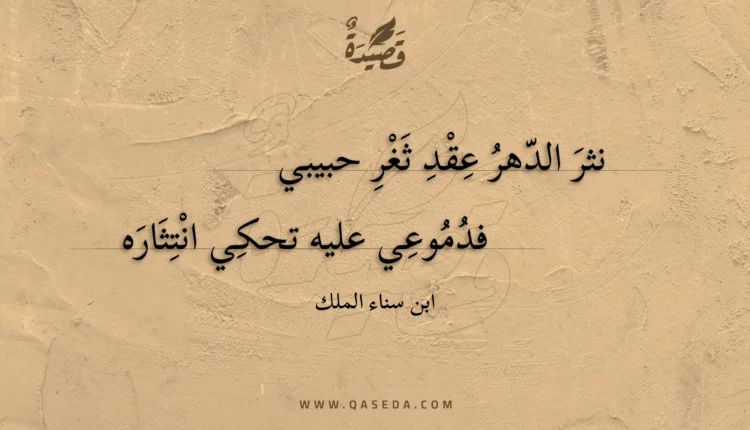 قَصِيْدَةٌ
نثرَ الدّهرُ عِقْدِ ثَغْرِ حبيبي
فدُمُوعِي عليه تحكِي انْتِثَارَه
ابن سناء الملك
WWW.QASEDA.COM